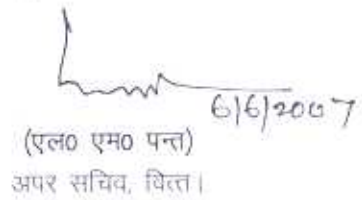 6/6/2007
(एल० एम० पन्त)
अपर सचिव, वित्त।